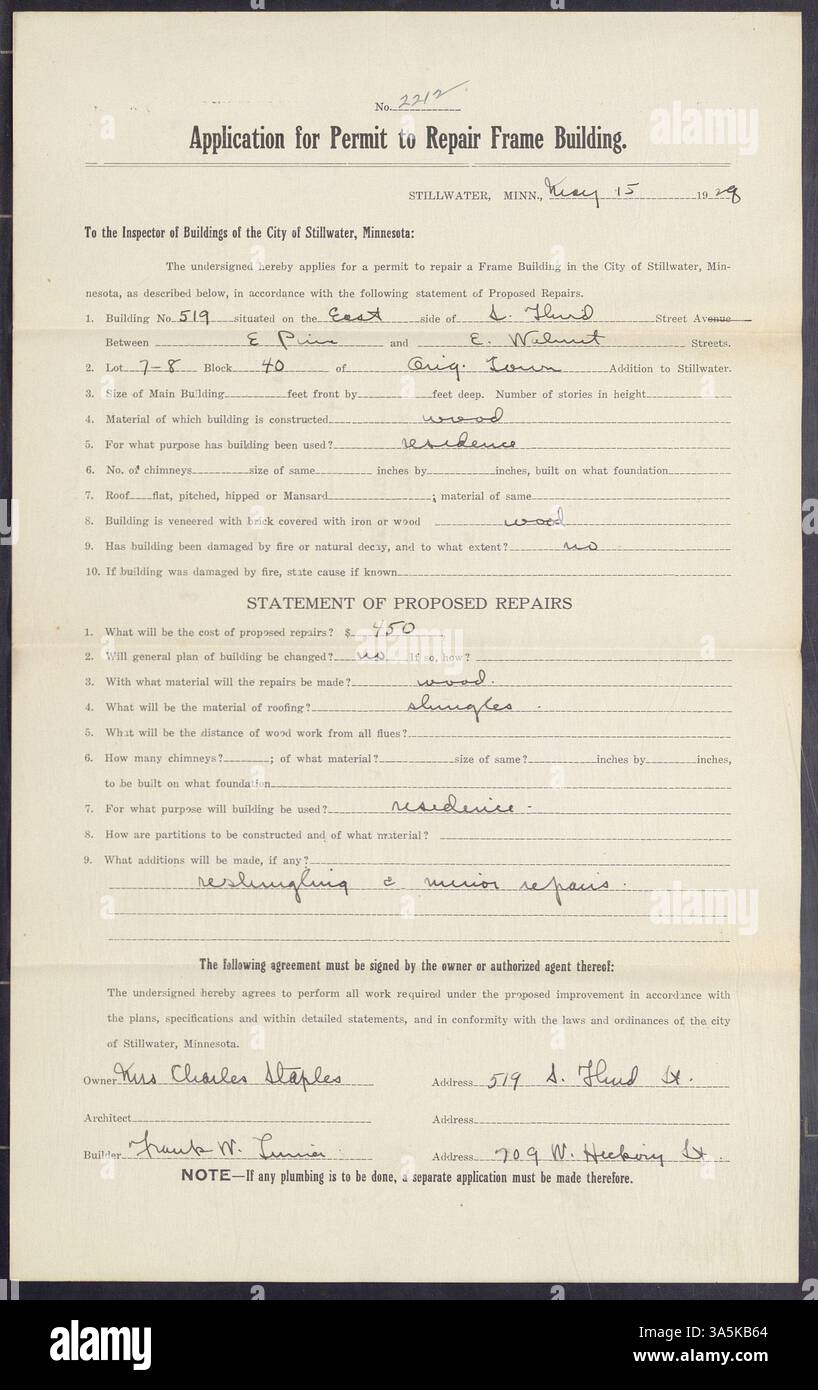 No. 2212
Application for Permit to Repair Frame Building.
STILLWATER, MINN., May 15 1929
To the Inspector of Buildings of the City of Stillwater, Minnesota:
The undersigned hereby applies for a permit to repair a Frame Building in the City of Stillwater, Min-
nesota, as described below, in accordance with the following statement of Proposed Repairs.
1. Building No. 519 situated on the East side of S. Third Street Avenue
Between E Pine and E. Walnut Streets.
2. Lot 7-8 Block 40 of Orig. Town Addition to Stillwater.
3. Size of Main Building feet front by feet deep. Number of stories in height
4. Material of which building is constructed wood
5. For what purpose has building been used? residence
6. No. of chimneys size of same inches by inches, built on what foundation
7. Roof flat, pitched, hipped or Mansard ; material of same
8. Building is veneered with brick covered with iron or wood wood
9. Has building been damaged by fire or natural decay, and to what extent? no
10. If building was damaged by fire, state cause if known
STATEMENT OF PROPOSED REPAIRS
1. What will be the cost of proposed repairs? $ 450
2. Will general plan of building be changed? no If so, how?
3. With what material will the repairs be made? wood.
4. What will be the material of roofing? shingles .
5. What will be the distance of wood work from all flues?
6. How many chimneys? ; of what material? size of same? inches by inches,
to be built on what foundation
7. For what purpose will building be used? residence -
8. How are partitions to be constructed and of what material?
9. What additions will be made, if any?
reshingling & minor repairs .
The following agreement must be signed by the owner or authorized agent thereof:
The undersigned hereby agrees to perform all work required under the proposed improvement in accordance with
the plans, specifications and within detailed statements, and in conformity with the laws and ordinances of the city
of Stillwater, Minnesota.
Owner Mrs Charles Staples Address 519 S. Third St.
Architect Address
Builder Frank W. Address 709 W. Hickory St.
NOTE—If any plumbing is to be done, a separate application must be made therefore.
alamy
Image ID: 3A5KB64
www.alamy.com